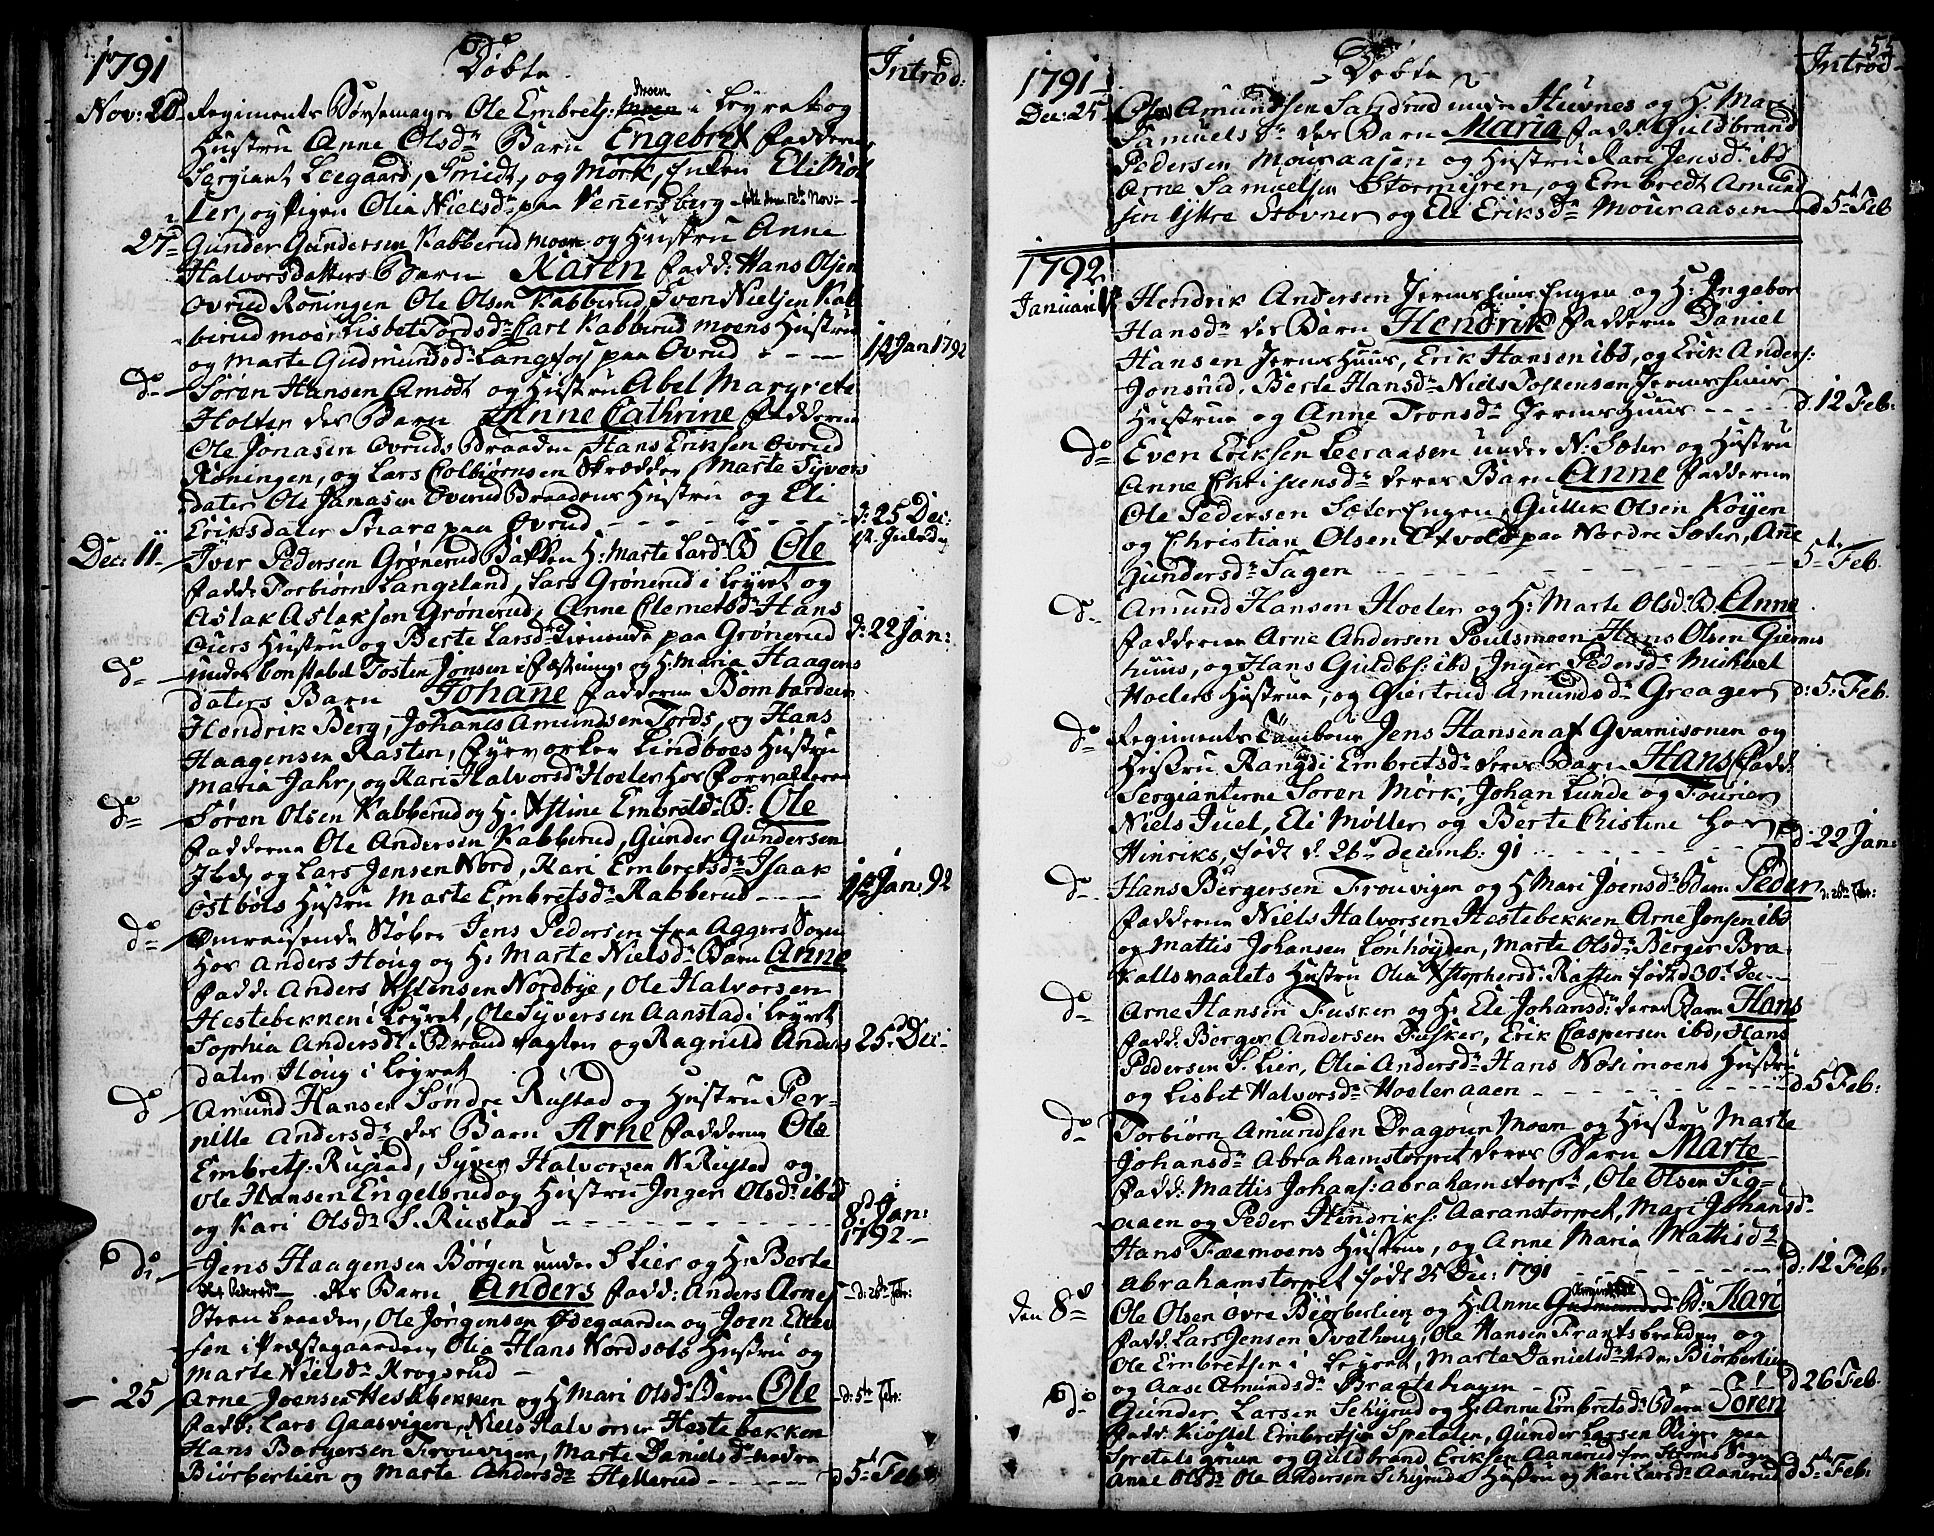 1791 Döbte Introd:
Nov: 20 Regiments Börsemager Ole Embretz: i Leyret og
Hustru Anne Olsdr Barn Engebret Faddere
Sergiant Leegaard, Smidt, og Mörk, Enken Eli Möl
ler, og Pigen Olia Nielsdr paa Veriersberg født den 12te Nov:
27 Gunder Gundersen Kabberud moen og Hustru Anne
Halvorsdatters Barn Karen Fadd: Hans Olsen
Ovrud Röningen Ole Olsen Kabberud, Sven Nielsen Kab
berud moen Lisbet Tordsdr Carl Kabberud moens Hustru
og Marte Gudmundsdr Langfos paa Ovrud - - - 1t Jan 1792
do Sören Hansen Amodt og Hustru Abel Margrete
Holter des Barn Anne Cathrine Faddere
Ole Jonasen Ovruds Braaden Hans Eriksen Ovrud
Röningen, og Lars Colbiörnsen Skrædder, Marte Syvers
dater Ole Janasen Overud Braadens Hustru og Eli
Eriksdater Snare paa Ovrud - - - d: 25 Dec:
Dec: 11 Iver Pedersen Grönerud Bakken H: Marte Larsdr B Ole
Fadd: Torbiörn Langeland, Lars Grönerud i Leyret og
Aslak Aslaksen Grönerud, Anne Clemetsdr Hans
Ouers Hustru og Berte Larsdr tienende paa Grönerud d: 22 Jan:
do under Constabel Tosten Jonsen i Fæstning: og H: Maria Haagens
daters Barn Johane Faddere Bombardeer
Hendrik Berg, Johanes Amundsen Tords, og Hans
Haagensen Rasten, Fyrverker Lindboes Hustru
Maria Jahr, og Kari Halvorsdr Hoeler hos Forvalteren
do Sören Olsen Kabberud og H. Embretsdr B: Ole
Faddere Ole Andersen Kabberud, Gunder Gundersen
Ibd, og Lars Jensen Nord, Kari Embretsdr Isaak
Ostbÿes Hustru Marte Embretsdr Kabberud - - - 1t Jan: 92
do Omreisende Stöber Jens Pedersen fra Aggers Sogn
hos Anders Houg og H: Marte Nielsdr Barn Anne
Fadd: Anders Nordbye, Ole Halvorsen
Hestebekken i Leyret, Ole Syversen Aanstad i Leyret
Sophia Andersdr i Brand vagten og Ragnild Anders 25 Dec:
dater Houg i Leyret
do Amund Hansen Söndre Rustad og Hustru Per-
nille Andersdr des Barn Arne Faddere Ole
Embretz: Rustad, Syver Halvorsen N. Rustad og
Ole Hansen Engelsrud og Hustru Inger Olsdr: ibd
og Kari Olsdr S. Rustad - - - 8de Jan: 1792
do Jens Haagensen Börgen under S Lier og H: Berte
Pedersdr des Barn Anders Fadd: Anders Arnes d: 26de Febr:
Steenbraaden, Ole Jörgensen Ödegaarden og Joen Elles
sen i Præstegaarden, Olia Hans Nordsets Hustru og
Marte Nielsdr Krogsrud -
- 25 Arne Joensen Hestebekken og H Mari Olsdr Barn Ole d: 5te Febr:
Fadd: Lars Gaasvigen, Niels Halvorsen Hestebekken
Hans Bergersen Trouvigen, Marte Danielsdr nedre
Biörberlien og Marte Andersdr Hellerud - - - d 5t Feb
1791 Döbte Introd 55
Dec: 25 Ole Amundsen Sandrud under Huvnes og H. Mari
Samuelsdr des Barn Maria Fadd: Guldbrand
Pedersen Mouraasen og Hustru Kari Jensdr ibd
Arne Samuelsen Stormyren, og Embredt Amund
sen Yttre Stövner og Ele Eriksdr Mouraasen d 5t Feb
1792
Januarii 1 Hendrik Andersen Engen og H: Ingebor
Hansdr des Barn Hendrik Faddere Daniel
Hansen, Erik Hansen ibd, og Erik Anders:
Jonsrud, Berte Hansdr Niels Tostensen
Hustrue og Anne Tronsdr - - - d. 12 Feb:
do Even Eriksen Leeraasen under N: Sæter og Hustru
Anne Christensdr deres Barn Anne Faddere
Ole Pedersen Sæter Engen, Gullik Olsen Köyen
og Christian Olsen Etvold paa Nordre Sæter, Ane
Gundersdr Sagen - - - 5te Feb.
do Amund Hansen Hoeler og H: Marte Olsdr B. Anne
Faddere Arne Andersen Poulsmoen, Hans Olsen Gierms
huus, og Hans Guldbs: ibd, Inger Pedersdr Michael
Hoelers Hustrue, og Giertrud Amundsdr Greager d: 5. Feb.
do Regiments Tambour Jens Hansen af Gvarnisonen og
Hustru Rangdi Embretsdr deres Barn Hans Fadd:
Sergianterne Sören Mörk, Johan Lunde og Fourier
Niels Juel, Eli Möller og Berte Christene hos
Hinriks, födt d. 26de Decemb: 91 - - - d: 22 Jan:
do Hans Bergersen Trouvigen og H Mari Joensdr Barn Peder d: 26de Febr:
Faddere Niels Halvorsen Hestebekken Arne Jonsen ibd
og Mattis Johansen Lonhöyden, Marte Olsdr Berger Bra-
kallsvaalets Hustru Olia Rasten födt d 30te Dec-
do Arne Hansen Fusker og H: Ele Johansdr: deres Barn Hans
Fadd: Berger Andersen Fusker, Erik Caspersen ibd, Hans
Pedersen S. Lier, Olia Andersdr Hans Næsimoens Hustru
og Lisbet Halvorsdr Hoeleraaen - - - d 5 Feb:
do Torbiörn Amundsen Dragoun Moen og Hustru Marte
Johansdr Abrahamstorpet deres Barn Marte
Fadd: Mattis Johans: abrahamstorpt, Ole Olsen Sig-
aaen og Peder Hendriks: Aaranstorpet, Mari Johansdr
Hans Faemoens Hustrue, og Anne Maria Mattisdr
abrahamstorpet födt 25 Dec: 1791 - - - d: 12 Feb:
den 8de Ole Olsen övre Biörberlien og H: Anne B: Kari
Fadd: Lars Jensen Svethoug, Ole Hansen Frantsbraaden og
Ole Embretsen i Leyret, Marte Danielsdr nedre Biörberlien
og Aase Amundsdr Bragtehagen - - - d 26 Feb
do Gunder Larsen Schyrud og H: Anne Embretsdr Barn Sören
Fadd: Kiöstel Embretsen Spetalen, Gunder Larsen paa
Spetalsgruen og Guldbrand Eriksen Aanerud fra Ströms Sogn
Anne Olsdr Ole Andersen Schyruds Hustru og Kari Larsdr Aanerud d 5te Feb: